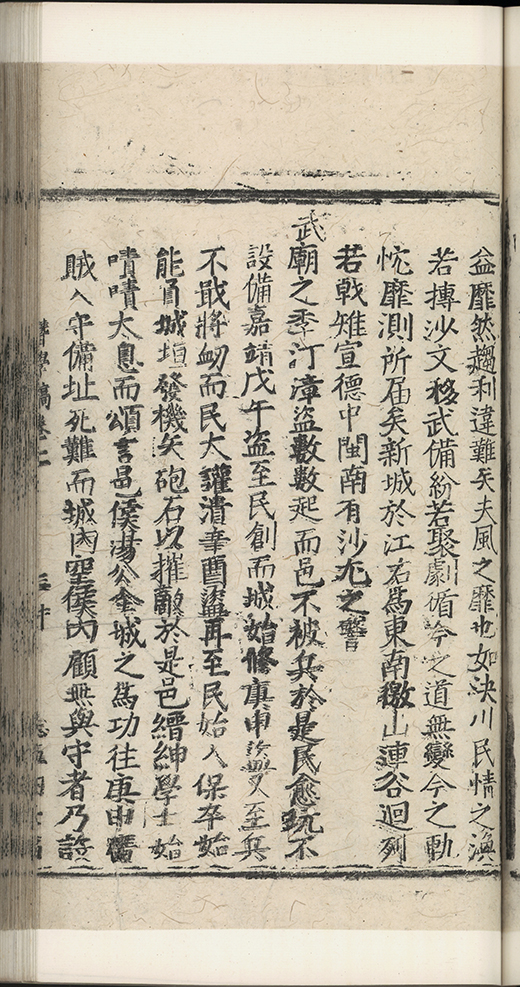 益靡然趨利違難矣夫風之靡也如決川民情之渙
若摶沙文移武備紛若聚劇循今之道無變今之勈
恍靡測所屆矣新城於江右為東南徼山連谷迴列
若戟雉宣德中閩南有沙尤之警
武廟之季汀漳盜數數起而邑不被兵於是民愈玩不
設備嘉靖戊午盜至民創而城始修庚申盜又至兵
不戢將衂而民大讙潰辛酉盜再至民始入保卒始
能負城垣發機矢砲石以摧敵於是邑縉紳學士始
嘖嘖大息而頌言邑侯湯公全城之為功往庚申舊
賊入守備址死難而城內空侯內顧無與守者乃設
學稿卷之二